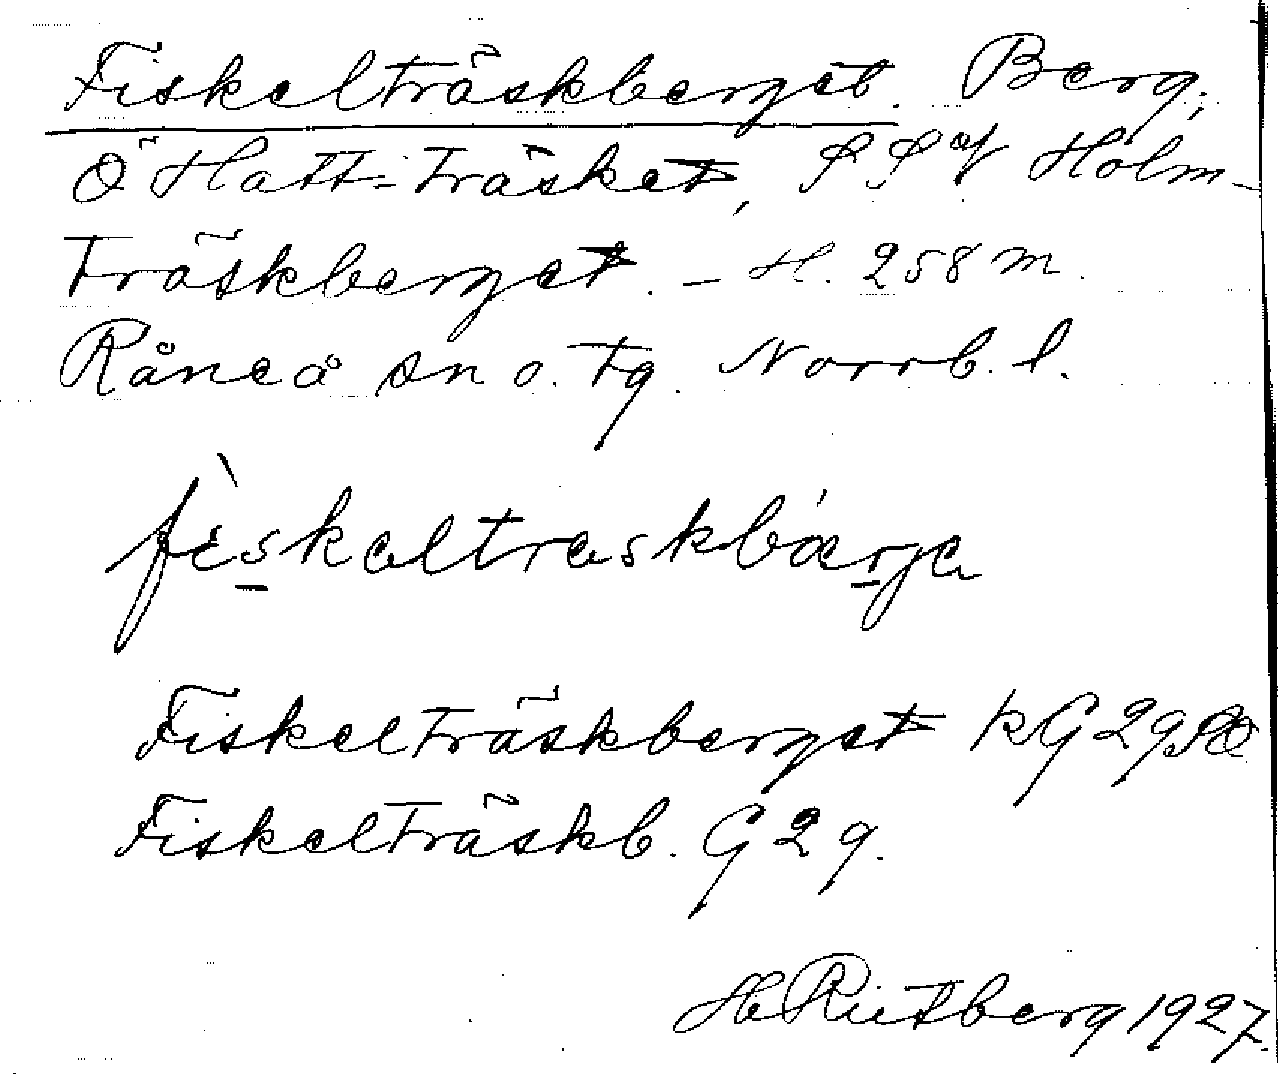 Fiskelträskberget. Berg;
Ö Hatt-träsket, SSV Holm-
träskberget. – H. 258 m.
Råneå sn o. tg. Norrb. l.
fìskəltraskbárja
Fiskelträskberget kG2g
Fiskelträskb. G2g.
H Rutberg 1927.